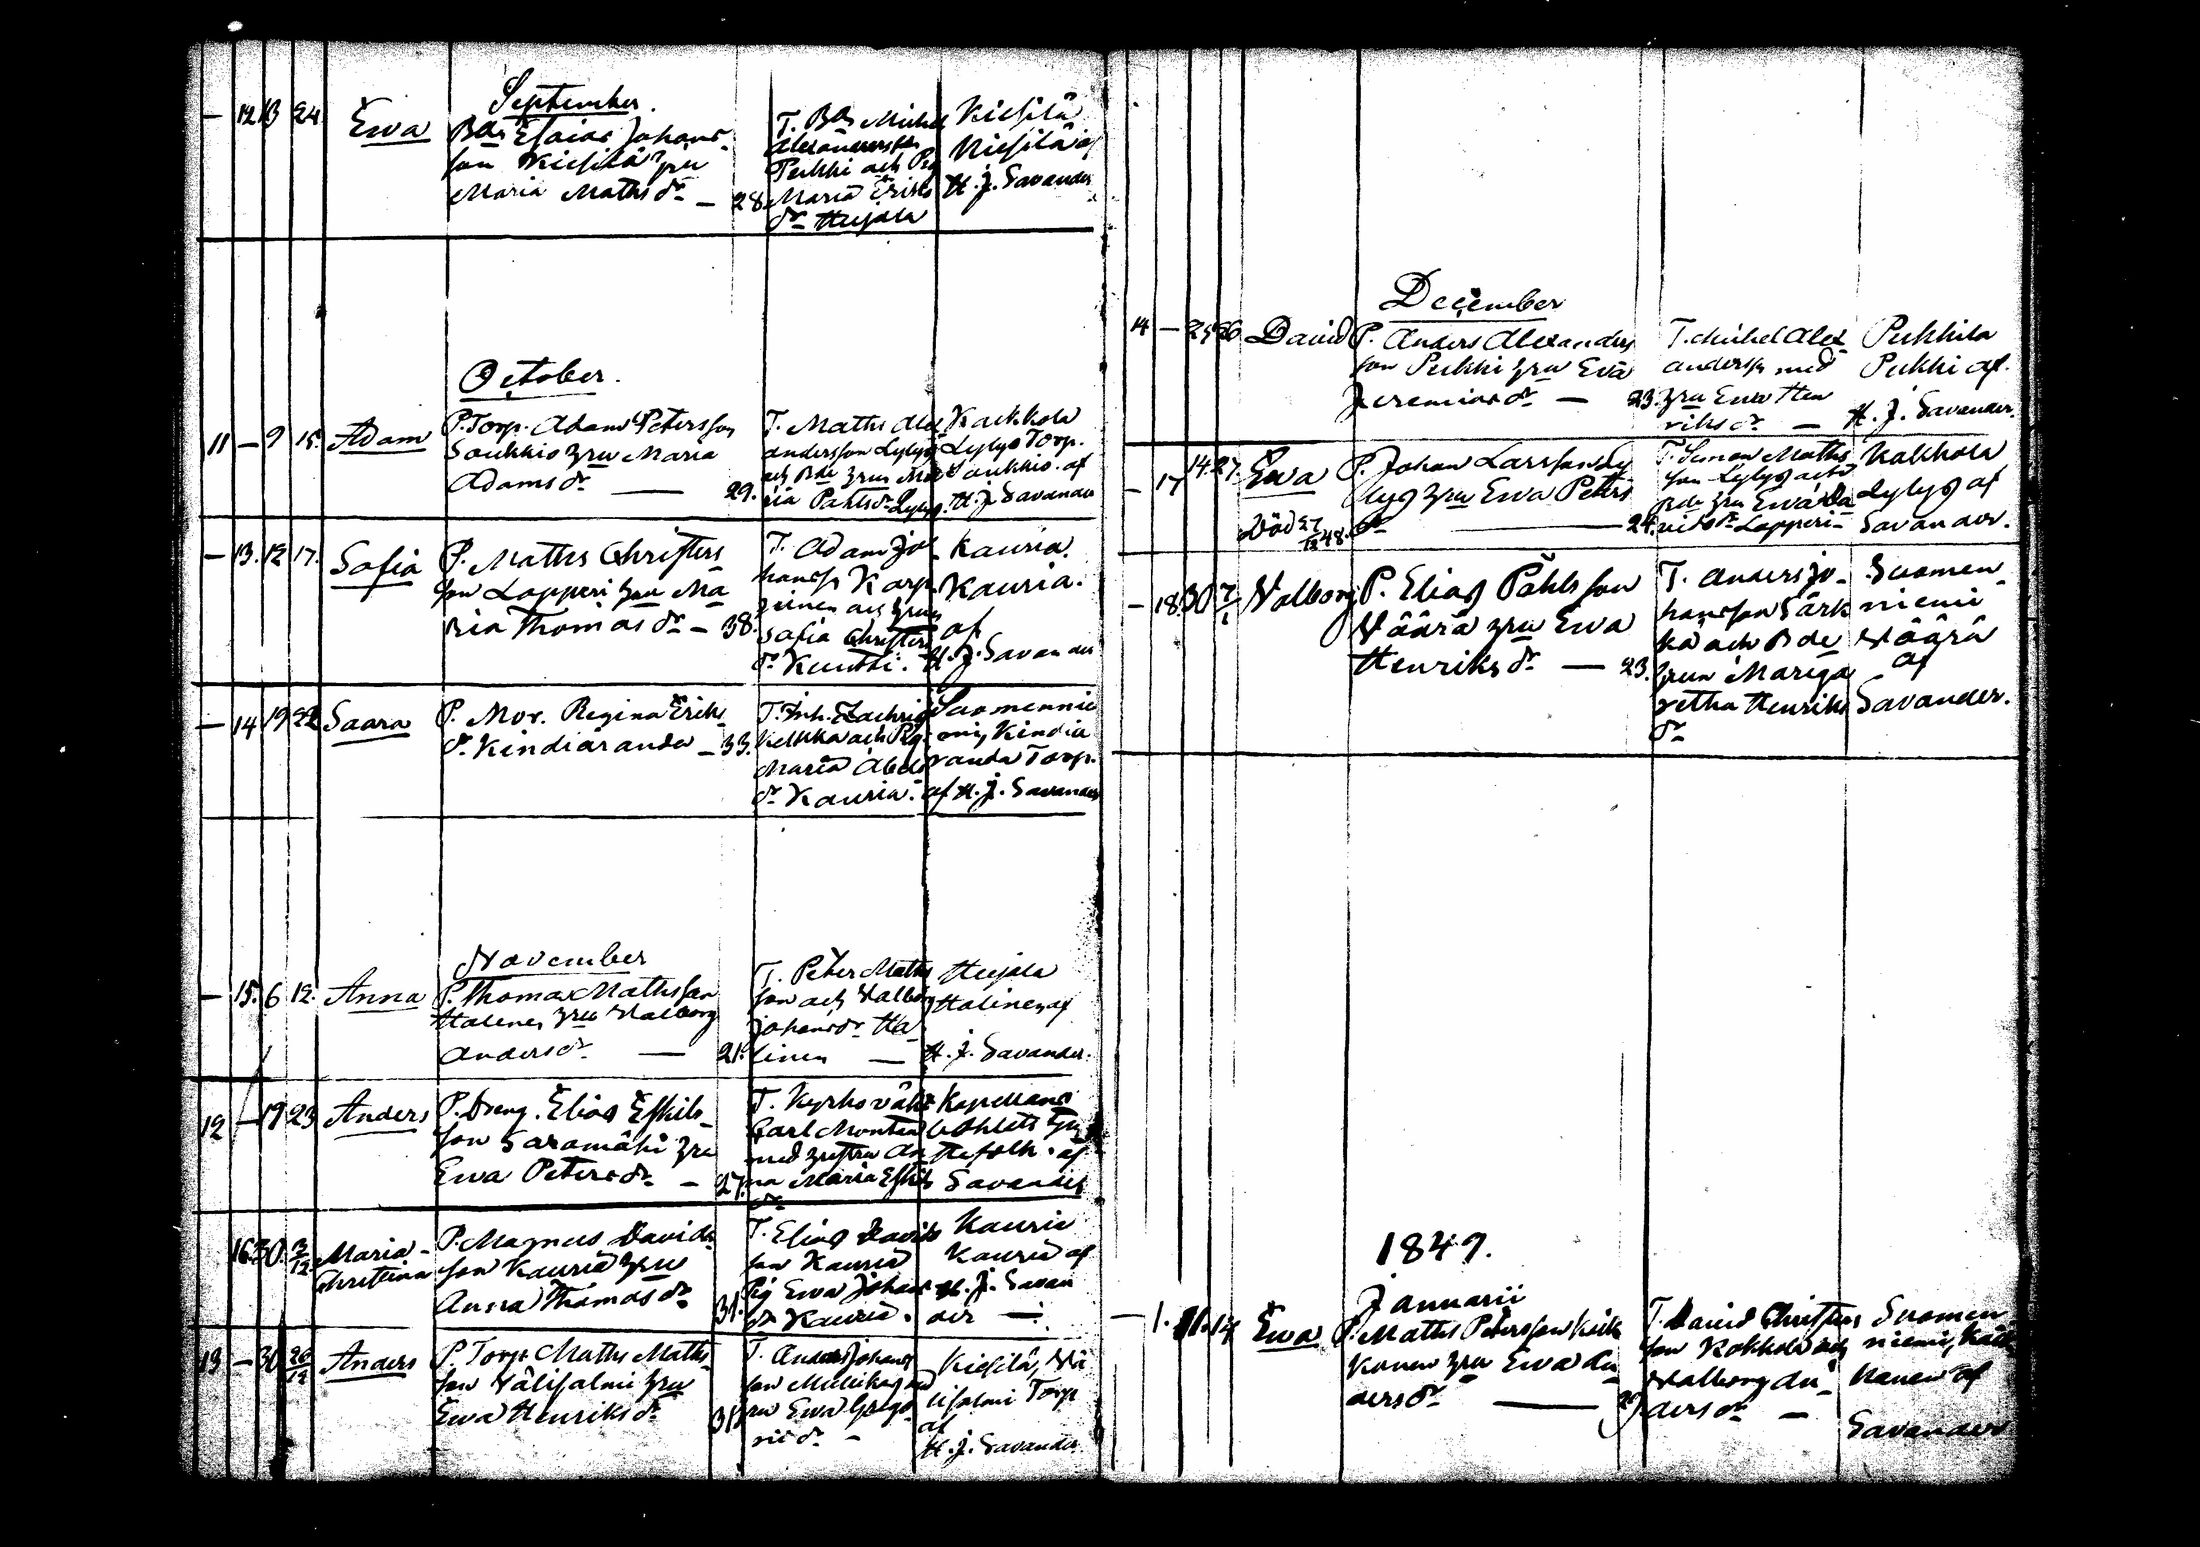 September.
— 12 13 24. Ewa
Bds Esaias Johans-
son Kiesilä hru
Maria Maths dr — 28.
T. Bds Michel
Alexandersson
Pukki och Pig
Maria Eriks
dr Hujala
Kiesilä
Kiesilä af
H. J. Savander
October.
11 — 9 15. Adam
P. Torp. Adam Petersson
Soukkio hru Maria
Adams dr — 29.
T. Maths Alex
andersson Lylys
och Bde hrus Ma
ria Pahls dr Lylys.
Kackkola
Lylys Torp.
Soukkio. af
H. J. Savander
— 13. 12 17. Sofia
P. Maths Christers
son Lapperi hru Ma
ria Thomas dr — 38.
T. Adam Jo
hanss Karp
peinen och hrus
Sofia Christers
dr Kuntti.
Kauria.
Kauria.
af
H. J. Savander
— 14 19 22 Saara
P. Mor. Regina Eriks
dr Kindiäranda — 33.
T. Inh. Zachris
Kelkka och Pig
Maria Abels
dr Kauria.
Suomennie
mi, Kindiä
randa Torp.
af H. J. Savander
November
— 15. 6 12. Anna
P. Thomas Mathsson
Halinen hru Walborg
Anders dr — 21.
T. Peter Maths
son och Walborg
Johans dr Ha
linen —
Hujala
Halinen af
H. J. Savander.
12 — 19 23 Anders
P. Dreng. Elias Eskils-
son Saramäki hru
Ewa Peters dr — 27.
T. Kyrkovákt
Carl Montin
med hustru An
na Maria Eskils
dr
Kapellans
Tje
stefolk. af
Savander
16. 30. 3/12 Maria-
Christina
P. Magnus Davids
son Kauria hru
Anna Thomas dr 31.
T. Elias Davids
son Kauria
Pig Ewa Johans
dr Kauria.
Kauria
Kauria af
H. J. Savan
der —
13 — 30 26/12 Anders
P. Torp Maths Maths-
son Välisalmi hru
Ewa Henriks dr 31.
T. Anders Johans
son Mulikka med
hru Ewa Grego
ris dr —
Kiesilä, Wä
lisalmi Torp
af
H. J. Savander
December
14 — 25 26 David
P. Anders Alexanders
son Pukki hru Eva
Jeremias dr — 23.
T. Michel Alex
anderss med
hru Ewa Hen
riks dr —
Pukkila
Pukki af.
H. J. Savander.
— 17 14. 27. Ewa
Död 27/12 48.
P. Johan Larsson Ly
lys hru Ewa Peters
dr — 24.
T. Simon Maths
son Lylys och
Bde hru Ewa Da
vids dr Lapperi—
Kakkola
Lylys af
Savander.
— 18. 30 7/1 Walborg
P. Elias Påhlsson
Wäärä hru Ewa
Henriks dr — 23.
T. Anders Jo-
hansson Särk
kä och Bde
hrus Marga
retha Henriks
dr
Suomen-
niemi
Wäärä
af
Savander.
1849.
Januarii
— 1. 11. 14 Ewa
P. Maths Petersson Kärk
känen hru Ewa An
ders dr —
T. David Christers
son Kokkola och
Walborg An-
ders dr —
Suomen
niemi, Kärk
känen af
Savander